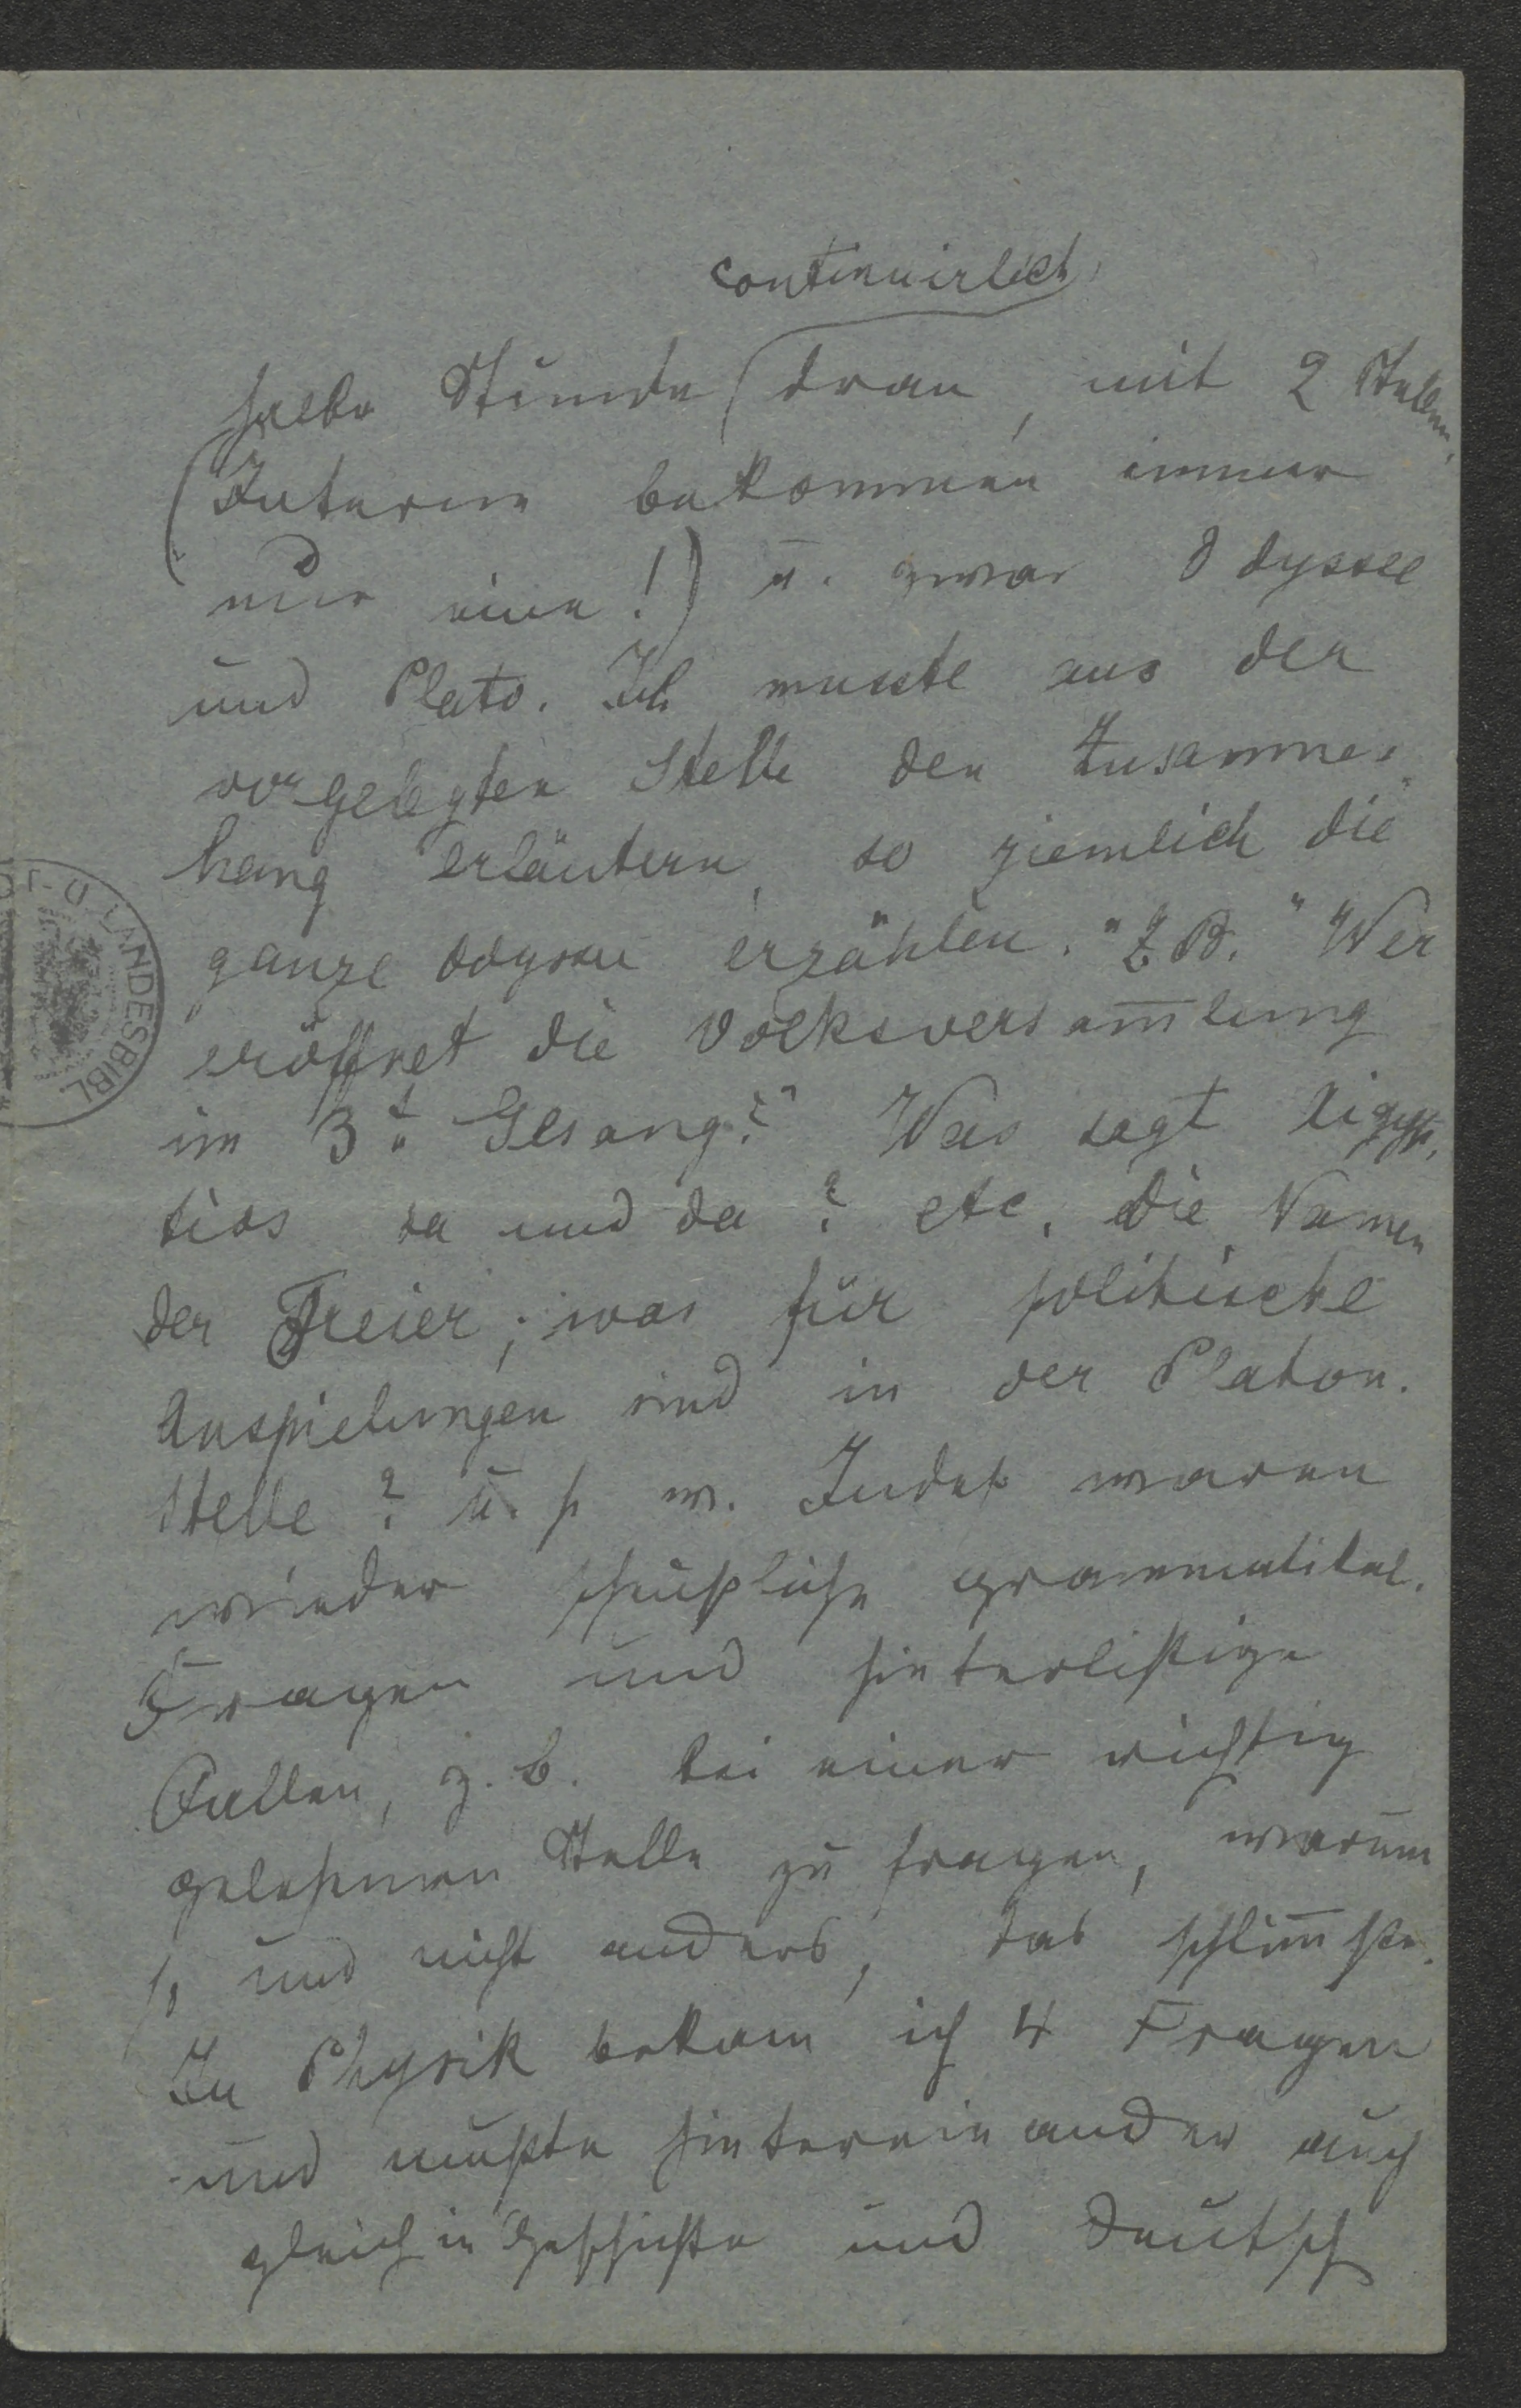 continuirlich
halbe Stunde dran, mit 2 Stellen,
(Interne bekommen immer
nur eine!) u. zwar Odyssee
und Plato. Ich musste aus der
vorgelegten Stelle den Zusammen-
hang erläutern, so ziemlich die
ganze Odyssee erzählen. "Z. B." "Wer
eröffnet die Volksversam̅lung
im 3t. Gesang?" Was sagt Aigyp-
tios da und da? etc. die Namen
der Freier; was für politische
Anspielungen sind in der Platon.
Stelle? u. s. w. Indes waren
wieder scheußliche grammatikal.
Fragen und hinterlistige
Fallen, z. b. bei einer richtig
gelesenen Stelle zu fragen, warum
so und nicht anders, das schlim̅ste.
In Physik bekam ich 4 Fragen
und mußte hintereinander auch
gleich in Geschichte und Deutsch
T.-U. LANDESBIBL